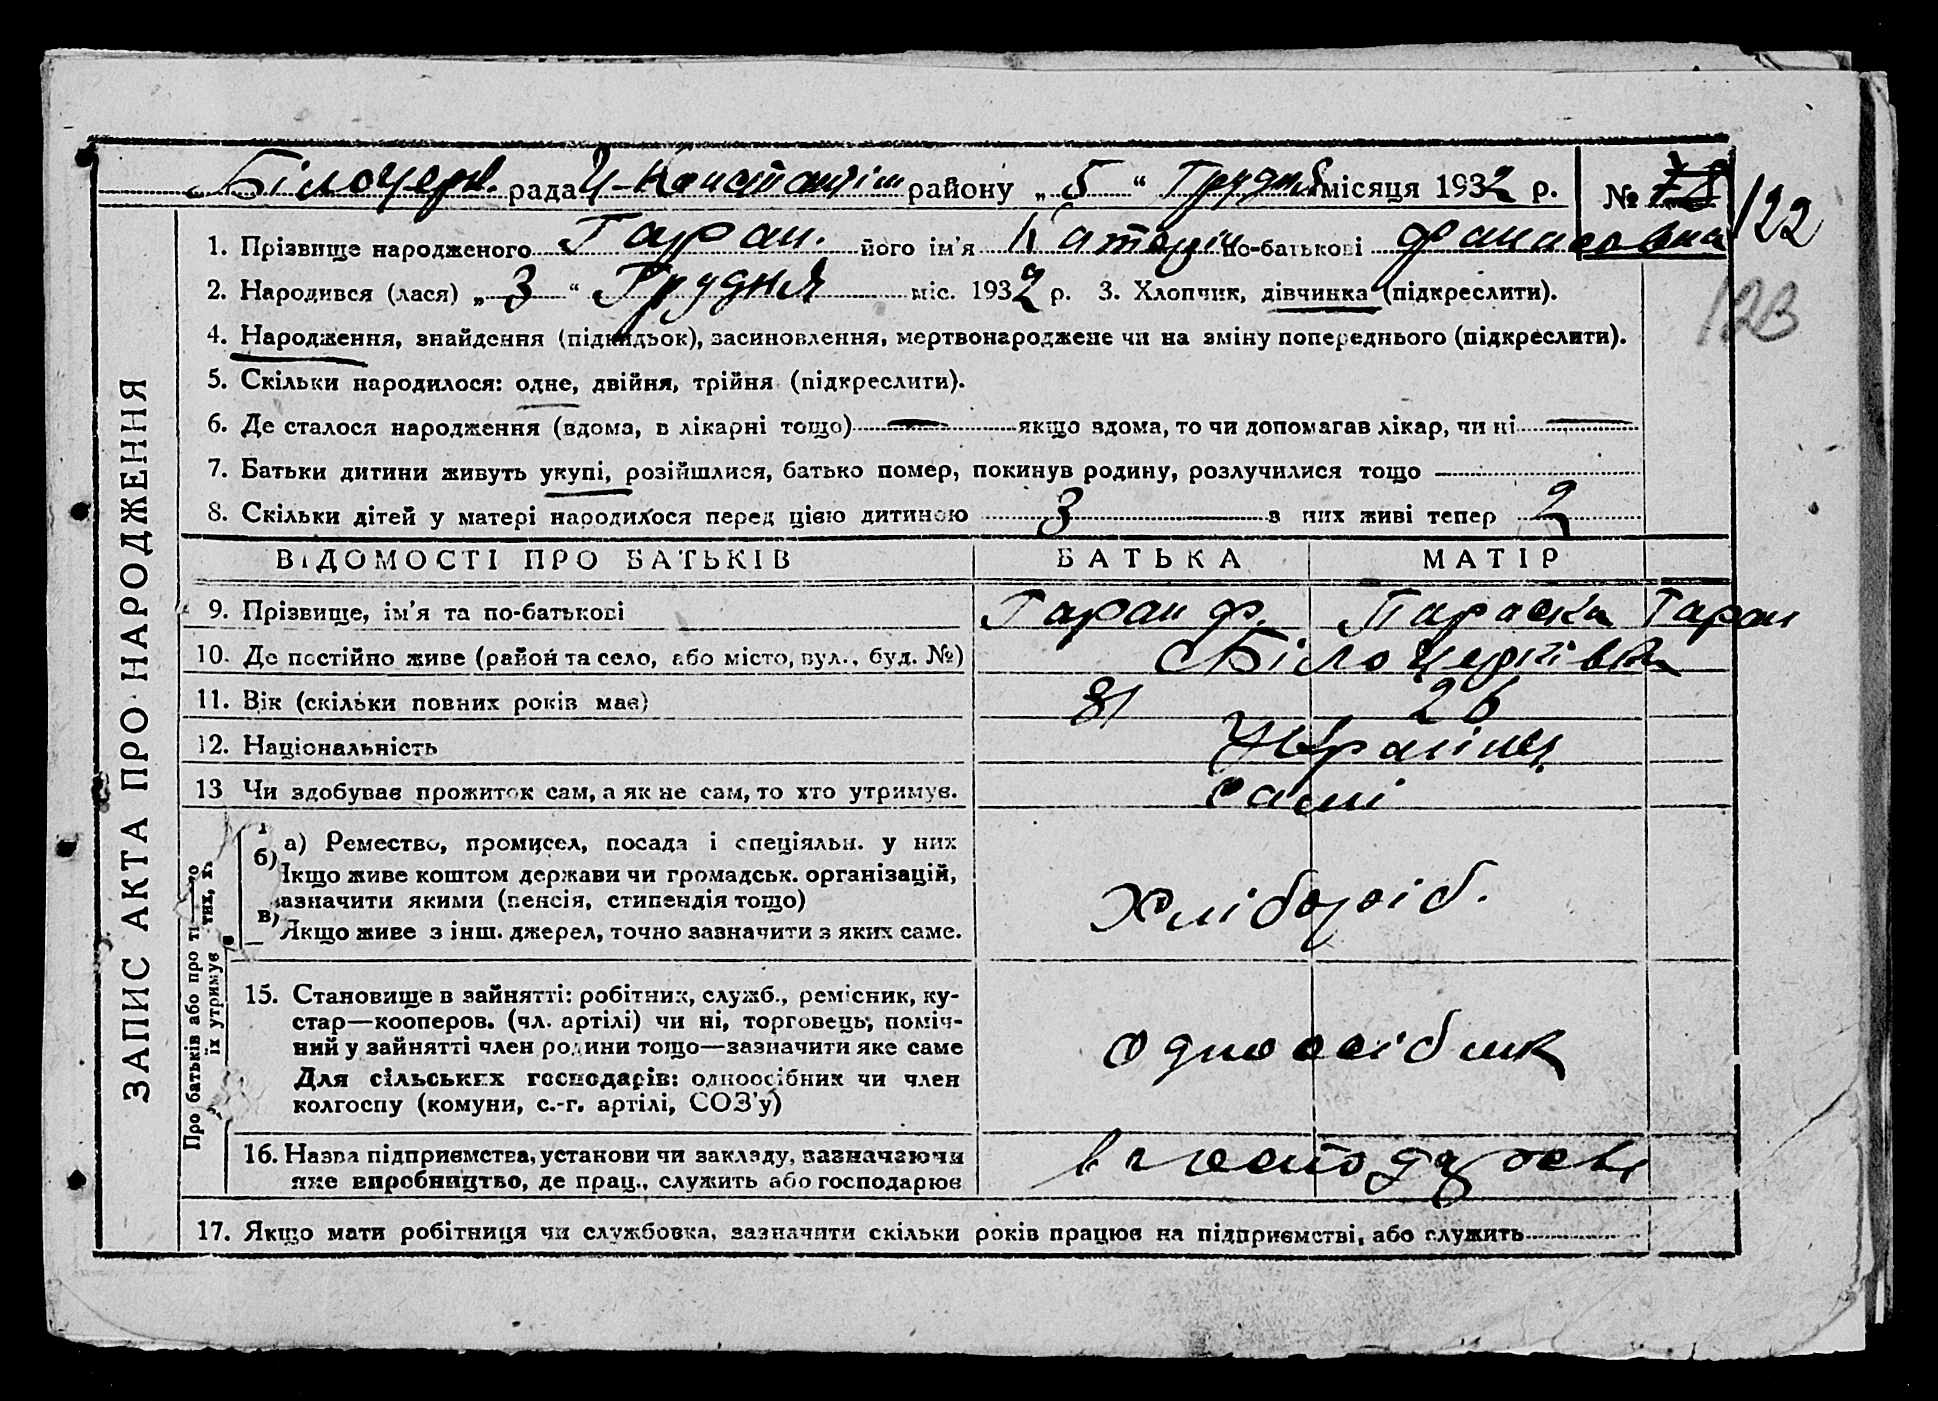 Білоцерк. рада У-Константін району „ 5 “ Грудня місяця 1932 р. № 78 122
1. Прізвище народженого Гаран. його ім’я Катерин по-батькові Фанасовна
2. Народився (лася) „ 3 “ Грудня міс. 1932 р. 3. Хлопчик, дівчинка (підкреслити).
123
4. Народження, знайдення (підкидьок), засиновлення, мертвонароджене чи на зміну попереднього (підкреслити).
5. Скільки народилося: одне, двійня, трійня (підкреслити).
6. Де сталося народження (вдома, в лікарні тощо) — якщо вдома, то чи допомагав лікар, чи ні —
7. Батьки дитини живуть укупі, розійшлися, батько помер, покинув родину, розлучилися тощо
8. Скільки дітей у матері народилося перед цією дитиною 3 з них живі тепер 2
ЗАПИС АКТА ПРО НАРОДЖЕННЯ
ВІДОМОСТІ ПРО БАТЬКІВ БАТЬКА МАТІР
9. Прізвище, ім’я та по-батькові Гаран Ф. Параска Гаран
10. Де постійно живе (район та село, або місто, вул., буд. №) Білоцерківка
11. Вік (скільки повних років має) 31 26
12. Національність Українці
13 Чи здобуває прожиток сам, а як не сам, то хто утримує. самі
Про батьків або про тих, хто
їх утримує
а) Ремество, промисел, посада і спеціяльн. у них
б) Якщо живе коштом держави чи громадськ. організацій,
зазначити якими (пенсія, стипендія тощо)
в) Якщо живе з інш. джерел, точно зазначити з яких саме.
Хлібороб.
15. Становище в зайнятті: робітник, служб., ремісник, ку-
стар—кооперов. (чл. артілі) чи ні, торговець, поміч-
ний у зайнятті член родини тощо—зазначити яке саме
Для сільських господарів: одноосібник чи член
колгоспу (комуни, с.-г. артілі, СОЗ’у)
одноосібник
16. Назва підприємства, установи чи закладу, зазначаючи
яке виробництво, де прац., служить або господарює
в господарстві
17. Якщо мати робітниця чи службовка, зазначити скільки років працює на підприємстві, або служить